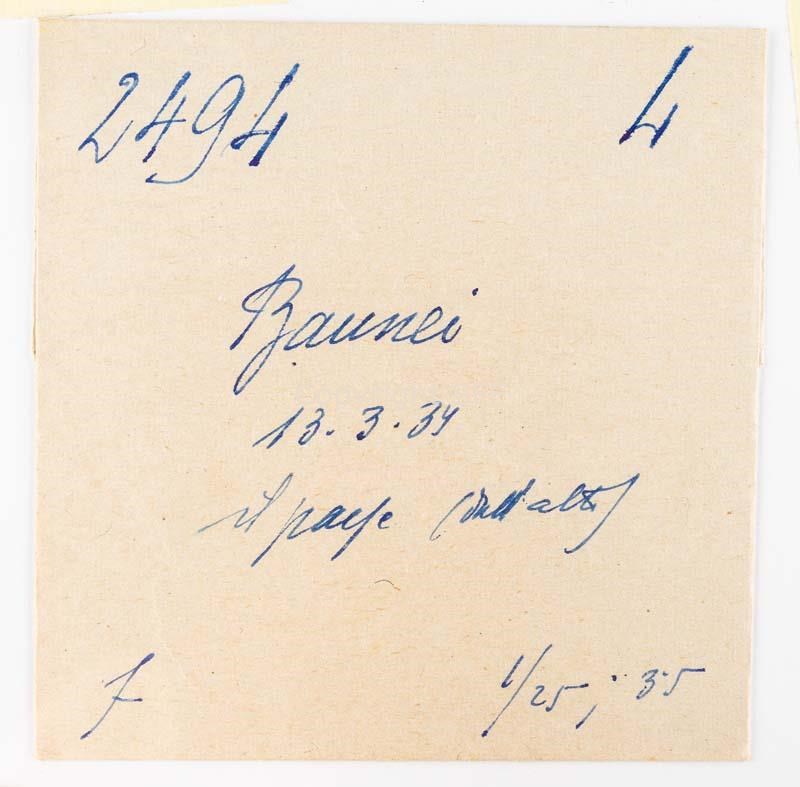 2494 4
Baunei
13.3.34
il paese (dall'alto)
7
1/25; 3.5